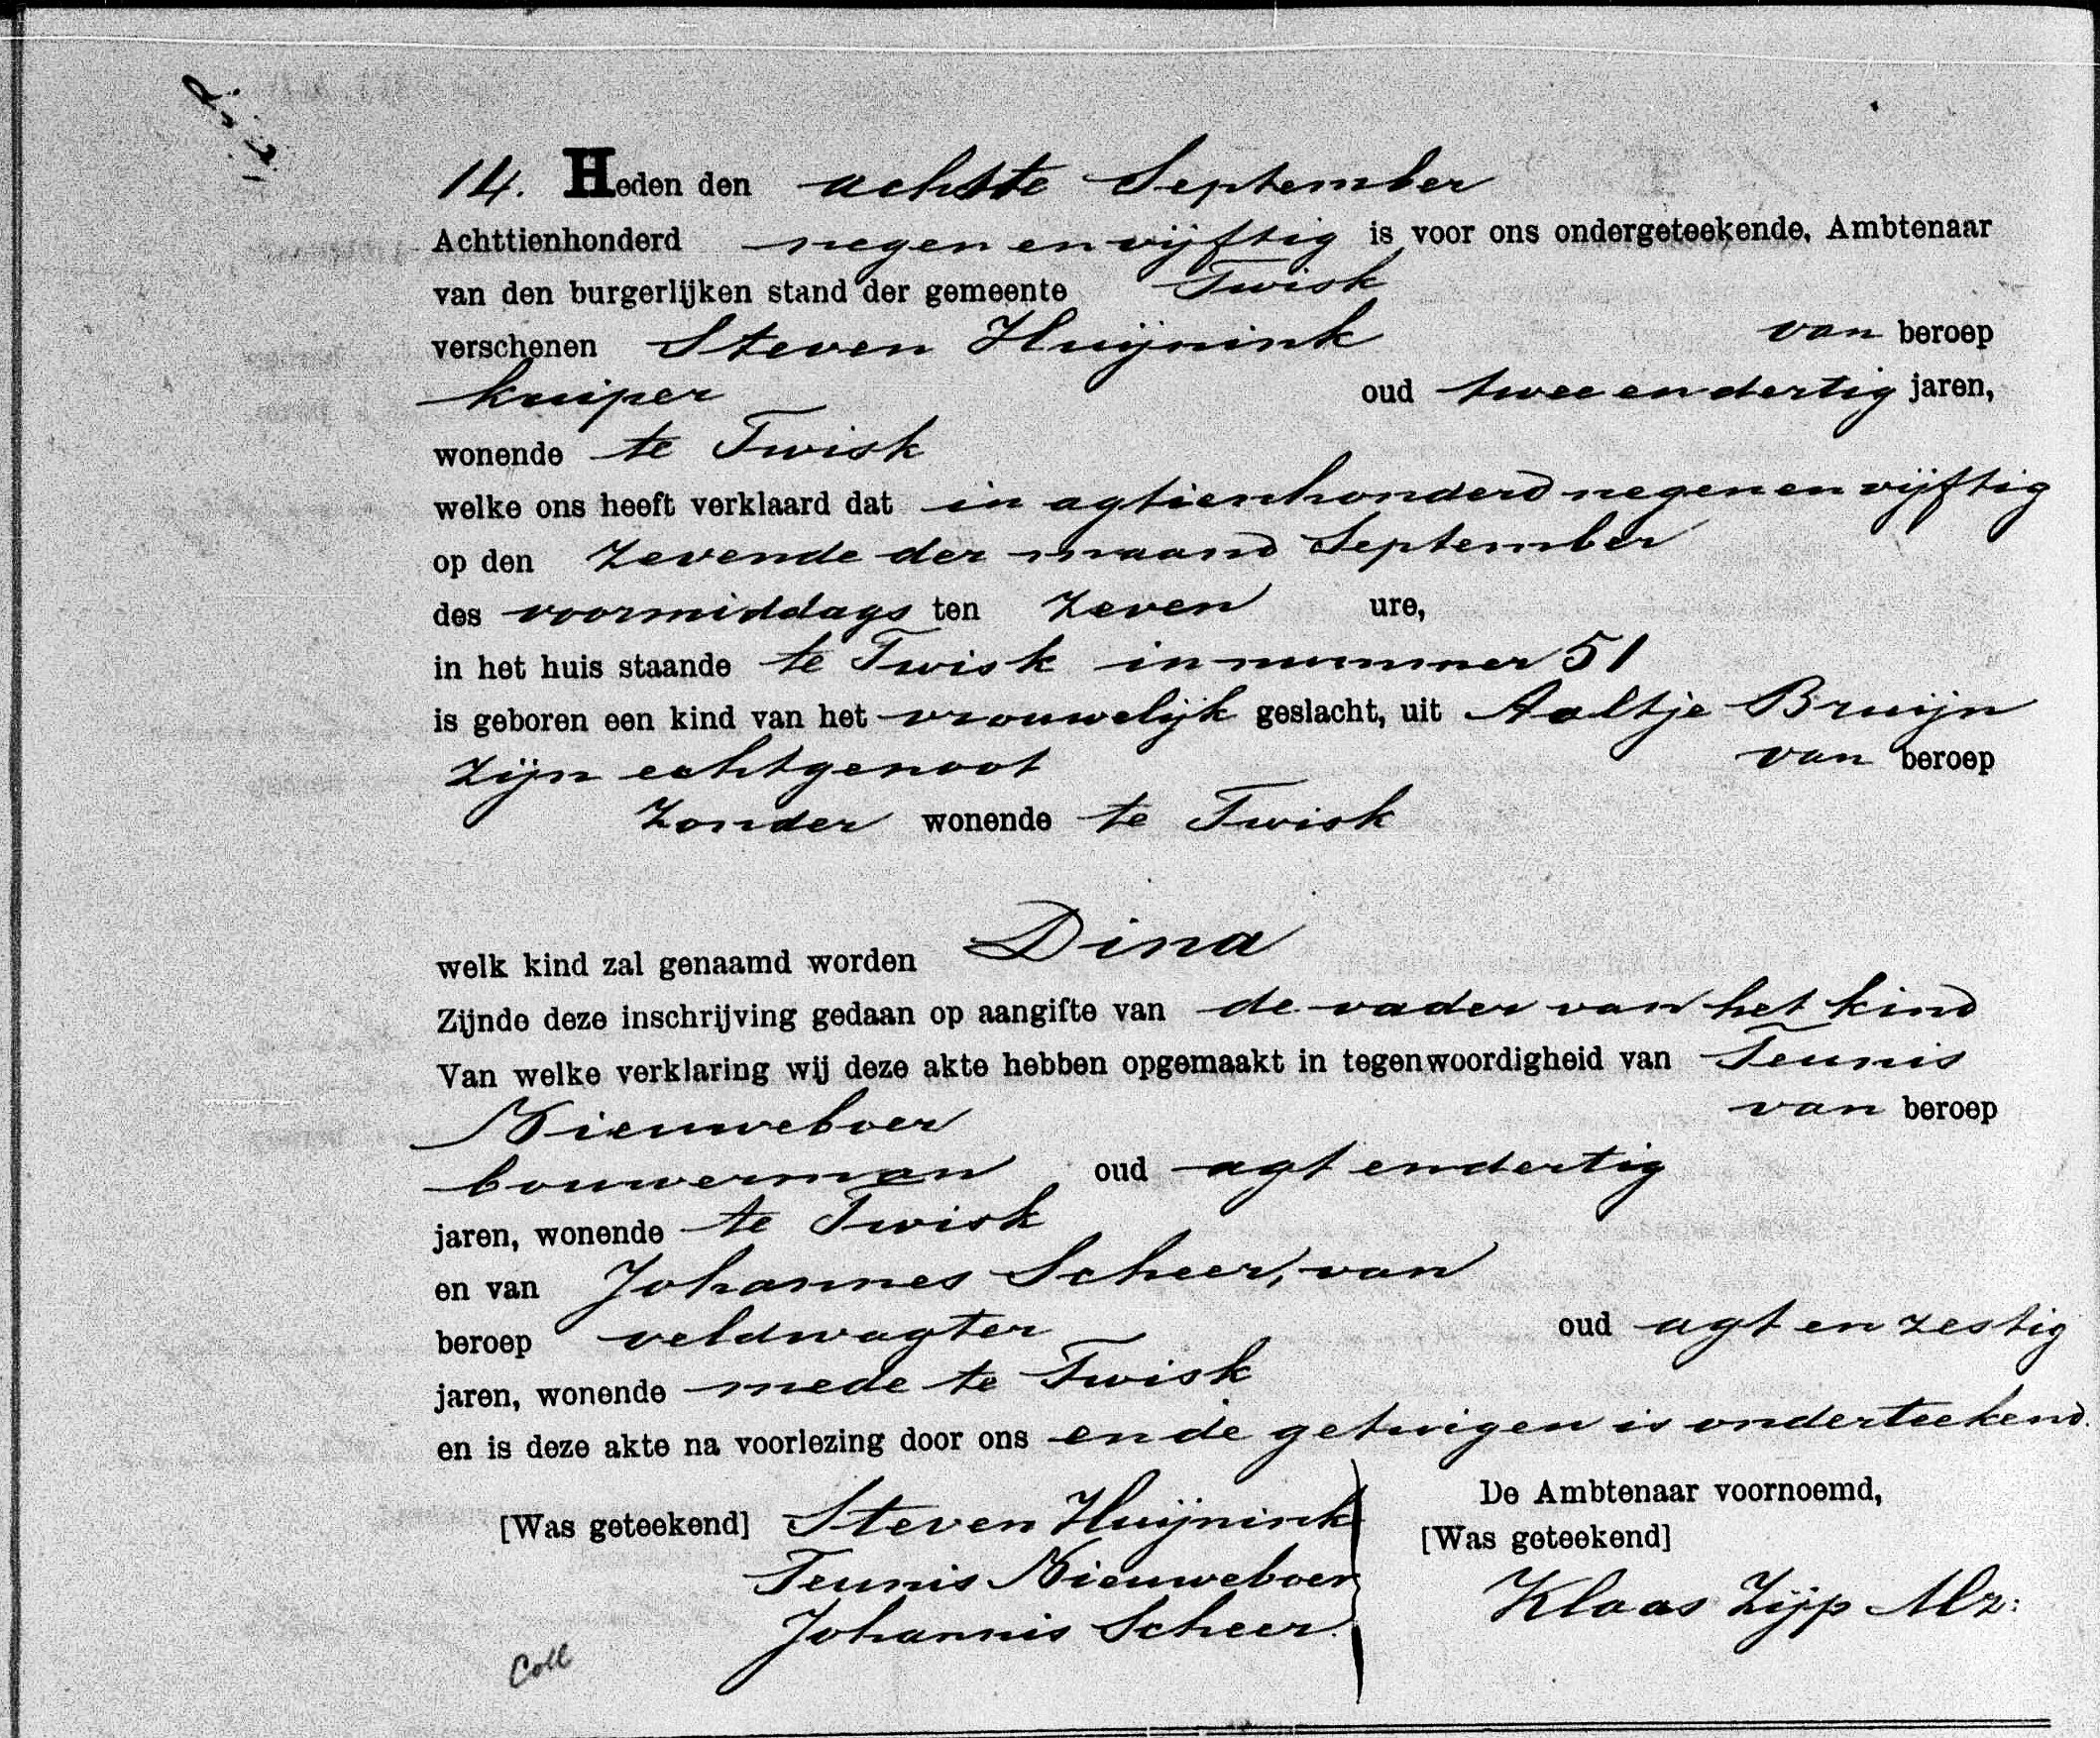 14. Heden den achtste September
Achttienhonderd negen en vijftig is voor ons ondergeteekende, Ambtenaar
van den burgerlijken stand der gemeente Twisk
verschenen Steven Huijnink van beroep
kuiper oud twee en dertig jaren,
wonende te Twisk
welke ons heeft verklaard dat in agtienhonderd negen en vijftig
op den zevende der maand September
des voormiddags ten zeven ure,
in het huis staande te Twisk in nummer 51
is geboren een kind van het vrouwelijk geslacht, uit Aaltje Bruijn
zijn echtgenoot van beroep
zonder wonende te Twisk
welk kind zal genaamd worden Dina
Zijnde deze inschrijving gedaan op aangifte van de vader van het kind
Van welke verklaring wij deze akte hebben opgemaakt in tegenwoordigheid van Teunis
Nieuweboer van beroep
bouwerman oud agt en dertig
jaren, wonende te Twisk
en van Johannes Scheer, van
beroep veldwagter oud agt en zestig
jaren, wonende mede te Twisk
en is deze akte na voorlezing door ons en de getuigen is onderteekend.
De Ambtenaar voornoemd,
[Was geteekend] Steven Huijnink
[Was geteekend]
Teunis Nieuweboer
Klaas Zijp Mz:
Johannis Scheer.
Coll